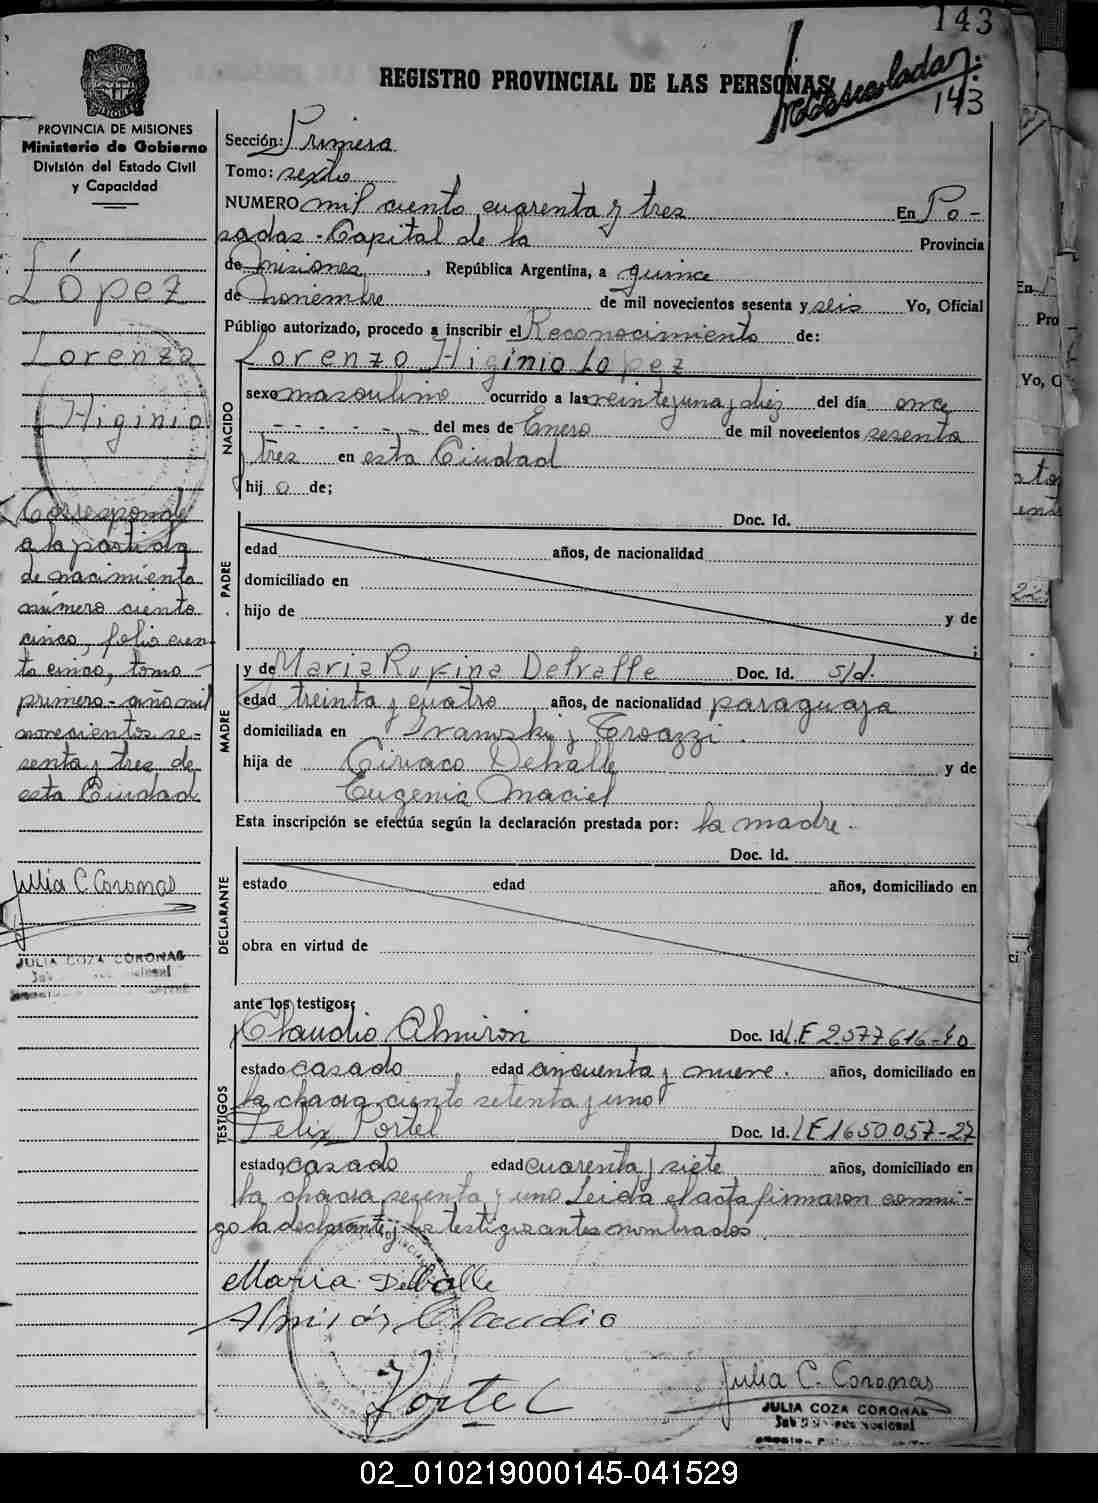 143
REGISTRO PROVINCIAL DE LAS PERSONAS
143
PROVINCIA DE MISIONES
Ministerio de Gobierno
División del Estado Civil
y Capacidad
López
Lorenzo
Higinio
Corresponde
a la partida
de nacimiento
número ciento
cinco, folio cien
to cinco, tomo
primero - año mil
novecientos se-
senta y tres de
esta Ciudad
Julia C. Coronas
JULIA COZA CORONAS
Sección: Primera
Tomo: sexto
NUMERO mil ciento cuarenta y tres En Po-
sadas - Capital de la Provincia
de Misiones, República Argentina, a quince
de noviembre de mil novecientos sesenta y seis Yo, Oficial
Público autorizado, procedo a inscribir el Reconocimiento de:
Lorenzo Higinio Lopez
NACIDO
sexo masculino ocurrido a las veintiuna y diez del día once
- - - - - - del mes de Enero de mil novecientos sesenta
tres en esta Ciudad
hijo de;
PADRE
Doc. Id.
edad años, de nacionalidad
domiciliado en
hijo de y de
;
MADRE
y de Maria Rufina Delvalle Doc. Id. s/d.
edad treinta y cuatro años, de nacionalidad paraguaya
domiciliada en
hija de Ciriaco Delvalle y de
Eugenia Maciel
Esta inscripción se efectúa según la declaración prestada por: la madre.
DECLARANTE
Doc. Id.
estado edad años, domiciliado en
obra en virtud de
ante los testigos;
TESTIGOS
Claudio Almiron Doc. Id. L.E 2.577.616-40
estado casado edad cincuenta y nueve. años, domiciliado en
la chacra ciento setenta y uno
Felix Portel Doc. Id. LE 1650057-27
estado casado edad cuarenta y siete años, domiciliado en
la chacra sesenta y uno. Leida el acta firmaron conmi-
go la declarante y los testigos antes nombrados.
Maria Delballe
Almirón Claudio
Portel
Julia C. Coronas
JULIA COZA CORONAS
02_010219000145-041529